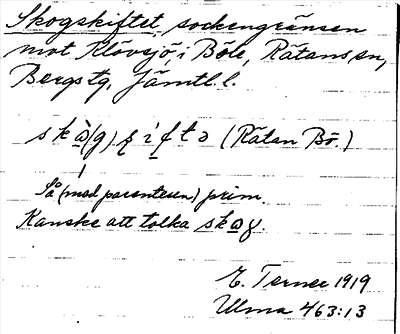 Skogskiftet, sockengränsen
mot Klövsjö, i Böle, Rätans sn,
Bergs tg, Jämtl. l.
(Rätan Bö.)
Så (med parentesen) prim.
Kanske att tolka
E. Ternee 1919
Ulma 463:13